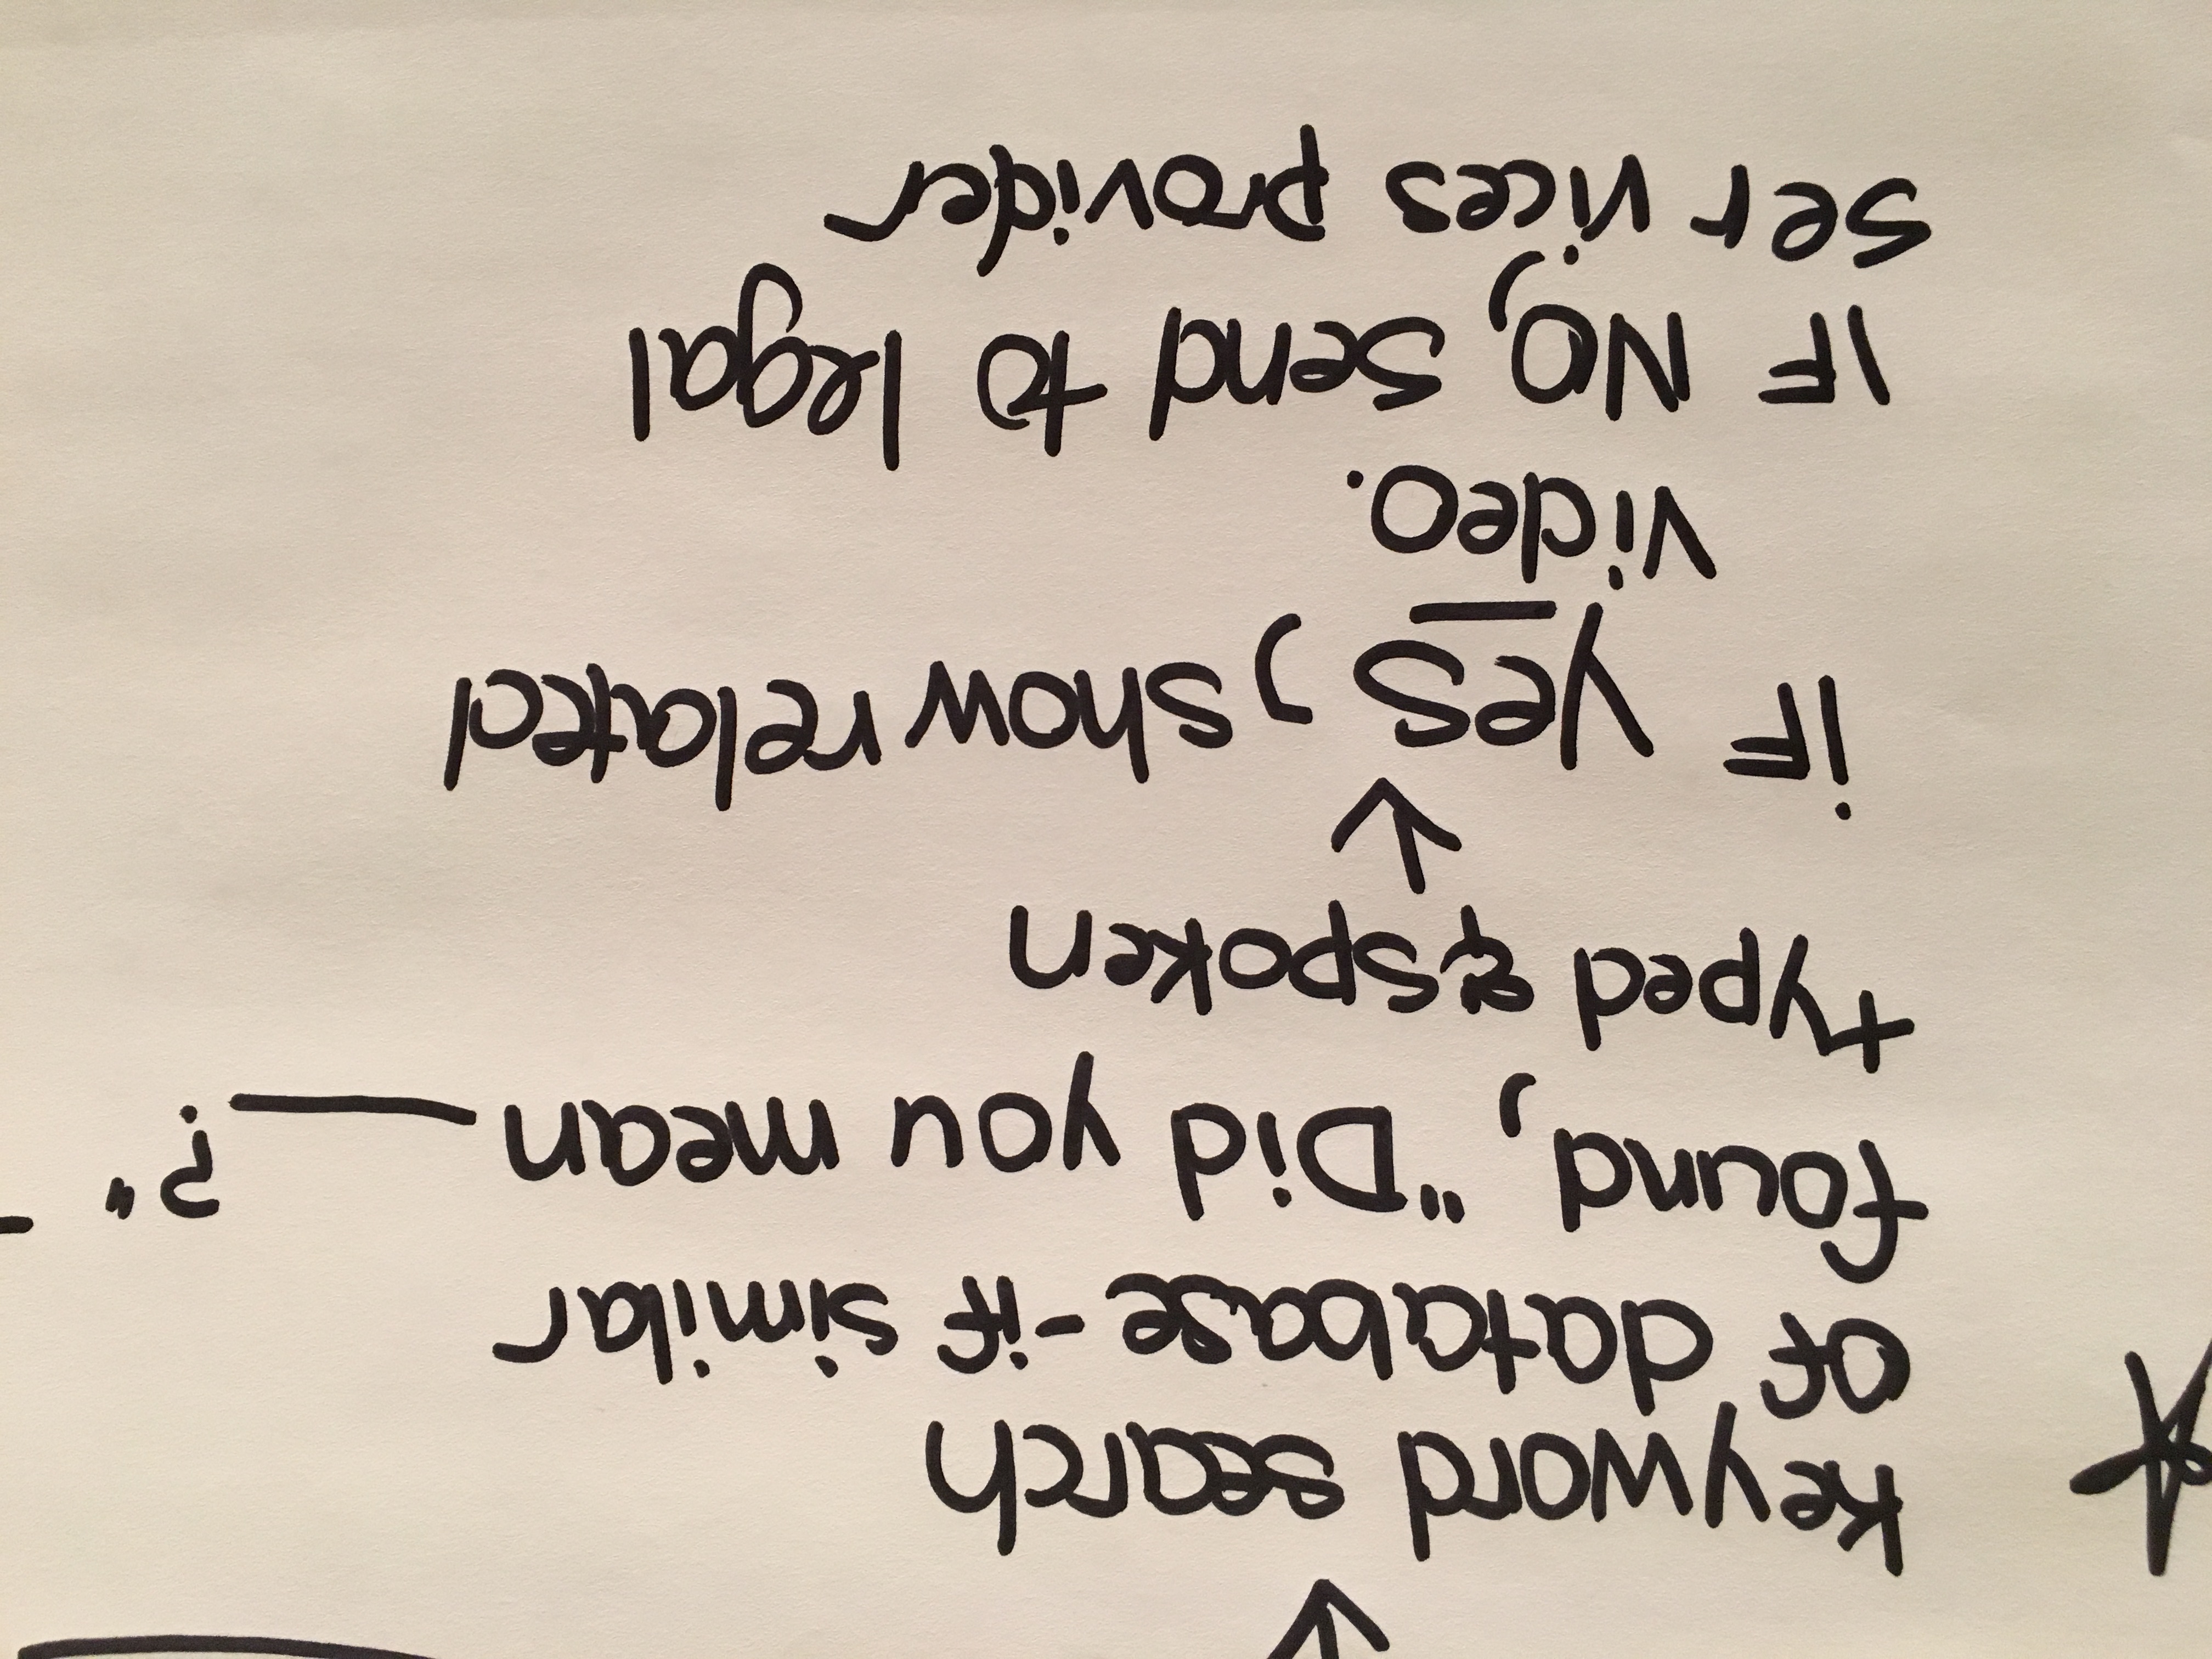 keyword search
of database - if similar
found, "Did you mean ___?"
typed & spoken
if yes, show related
video.
IF NO, send to legal
services provider